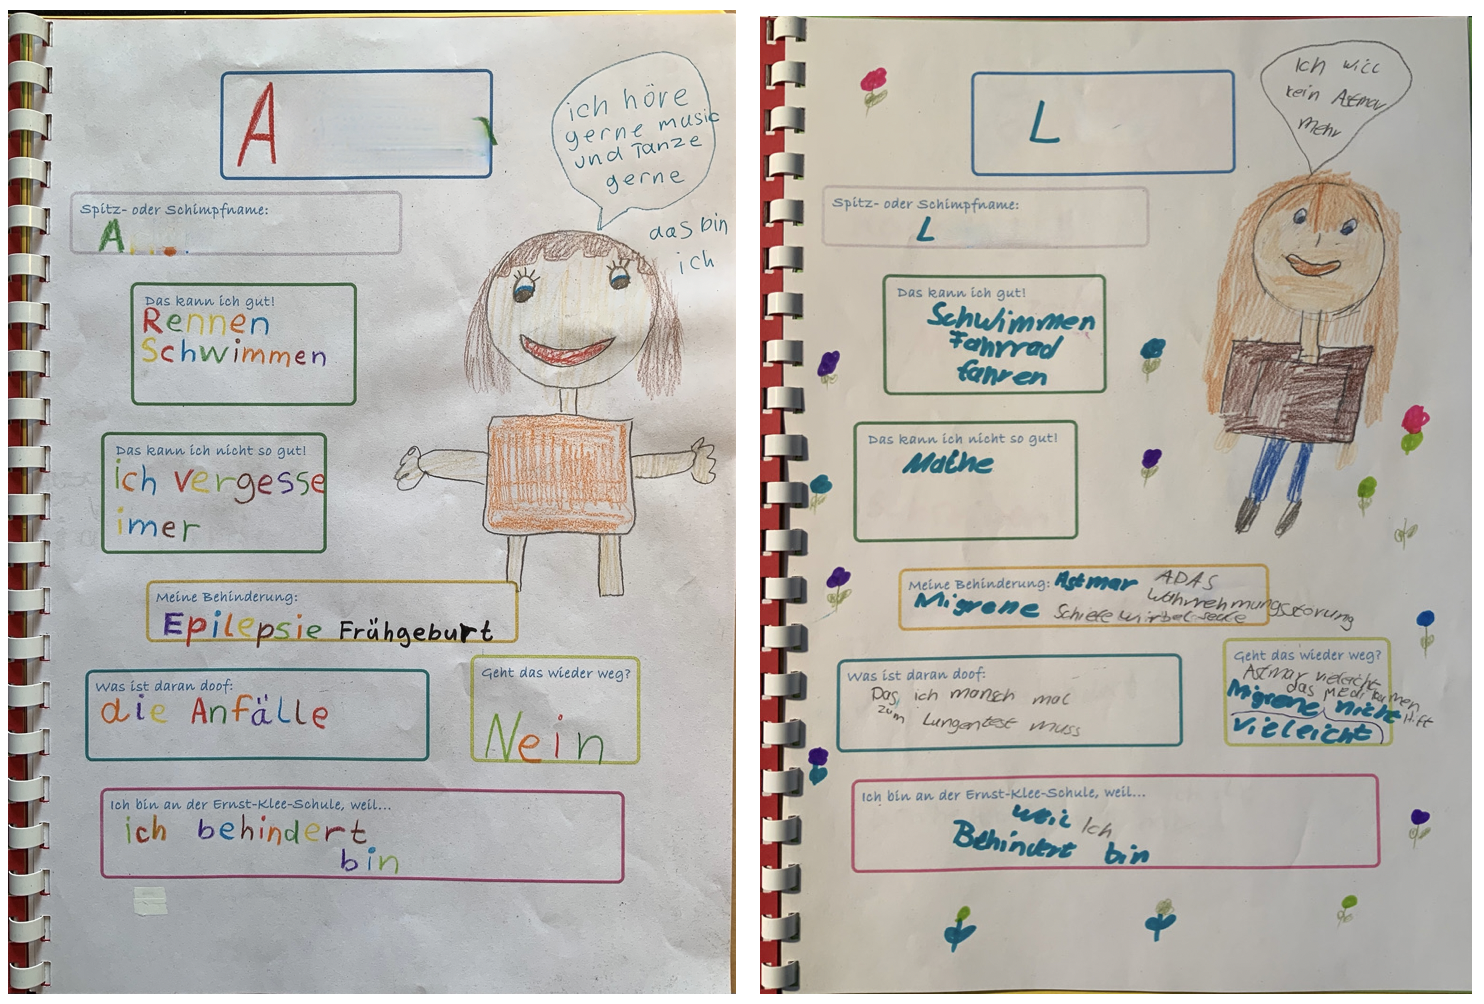 A
ich höre
gerne music
und Tanze
gerne
das bin
ich
Spitz- oder Schimpfname:
A
Das kann ich gut!
Rennen
Schwimmen
Das kann ich nicht so gut!
ich vergesse
imer
Meine Behinderung:
Epilepsie Frühgeburt
Was ist daran doof:
die Anfälle
Geht das wieder weg?
Nein
Ich bin an der Ernst-Klee-Schule, weil...
ich behindert
bin
L
Ich will
kein Astmar
mehr
Spitz- oder Schimpfname:
L
Das kann ich gut!
Schwimmen
Fahrrad
fahren
Das kann ich nicht so gut!
Mathe
Meine Behinderung: Astmar ADAS
Migrene Wahrnehmungsstörung
Schiefe
Was ist daran doof:
Das ich mansch mal
zum Lungentest muss
Geht das wieder weg?
Astmar vieleicht
das
Migrene nicht
vielleicht
Ich bin an der Ernst-Klee-Schule, weil...
weil Ich
Behindert bin